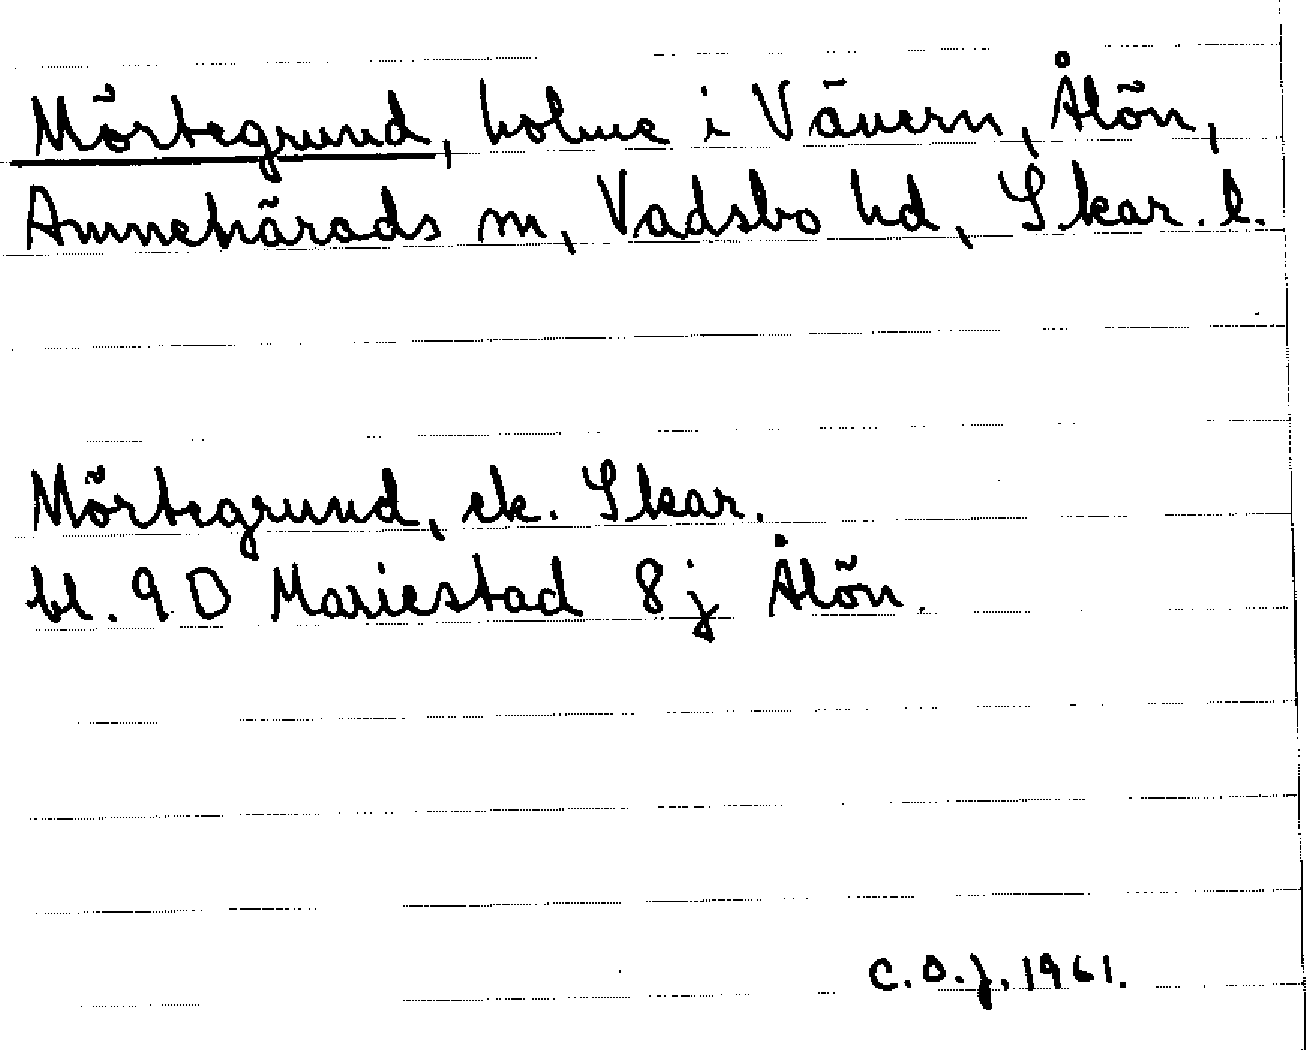 Mörtegrund, holme i Vänern, Ålön,
Amnehärads sn, Vadsbo hd, Skar. l.
Mörtegrund, ek. Skar.
bl. 9 D Mariestad 8 j Ålön.
C.O.J. 1961.